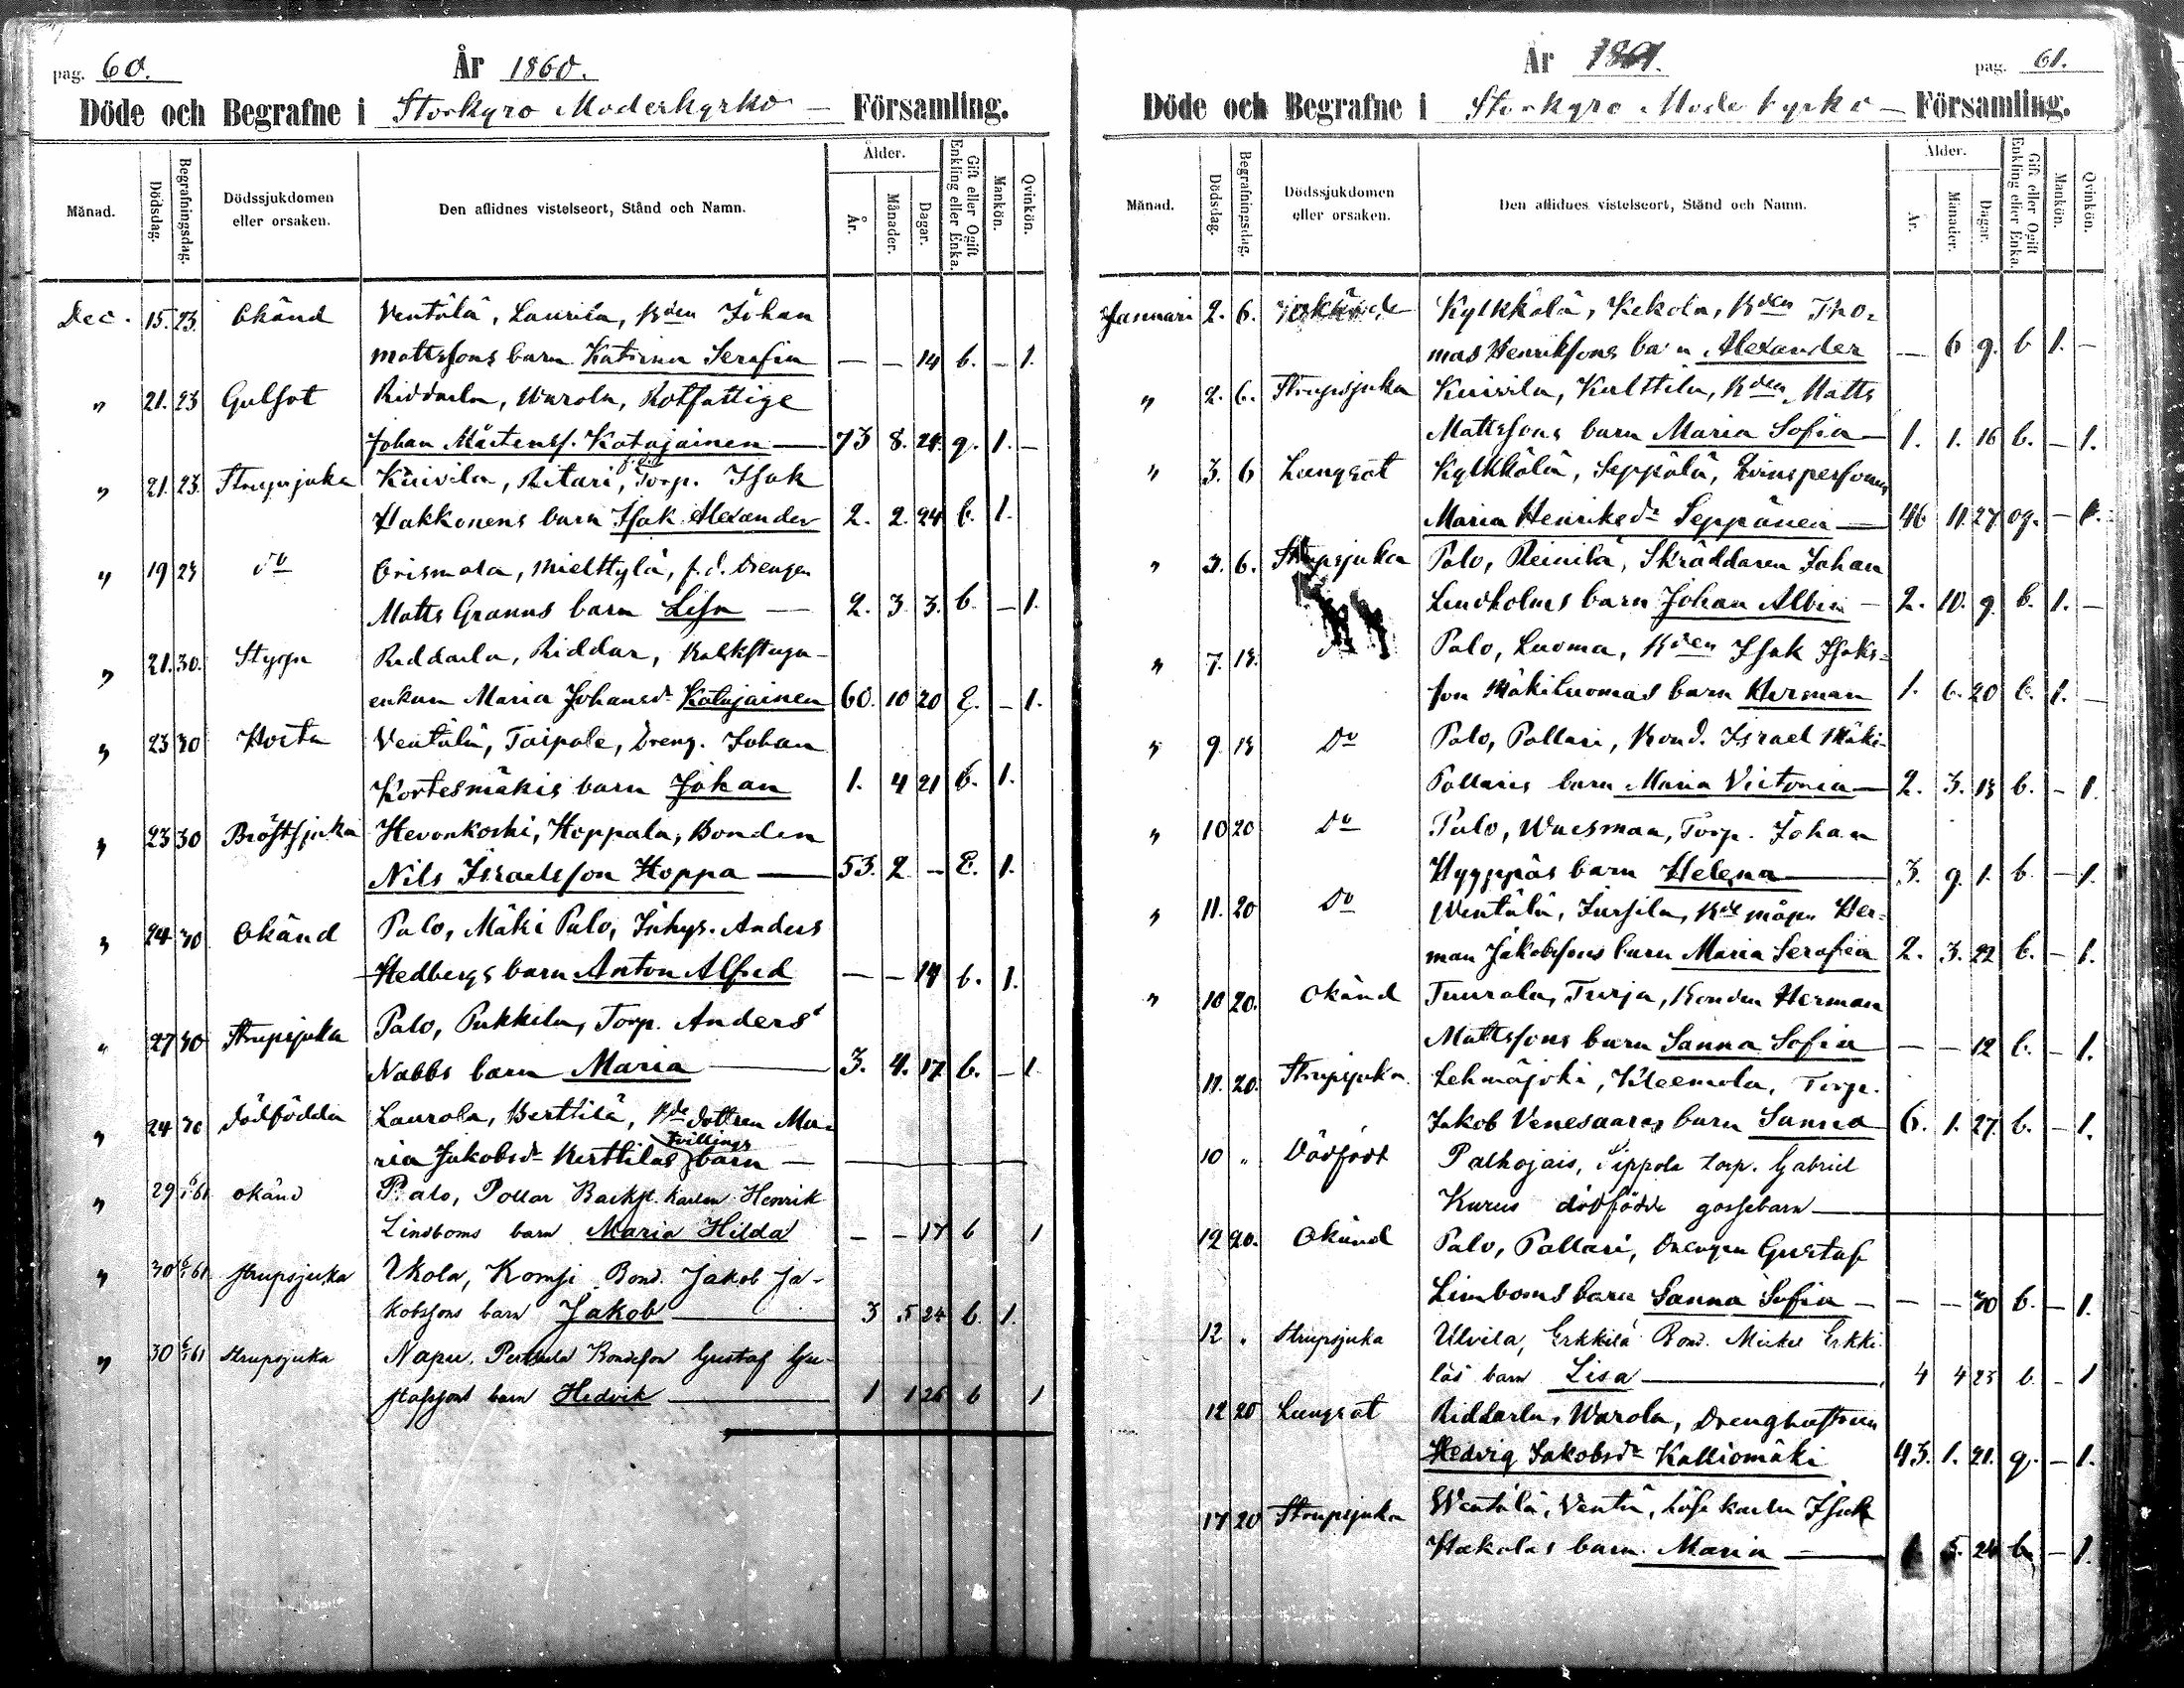 pag. 60.
År 1860.
Döde och Begrafne i Storkyro Moderkyrko — Församling.
Månad.
Dödsdag.
Begrafningsdag.
Dödssjukdomen eller orsaken.
Den aflidnes vistelseort, Stånd och Namn.
Ålder.
År.
Månader.
Dagar.
Gift eller Ogift Enkling eller Enka.
Mankön.
Qvinkön.
Dec. 15. 23 Okänd Ventälä, Laurila, Bden Johan
Mattssons barn Katrina Serafia — — 14 b. — 1.
" 21. 23 Gulsot Riddarla, Warola, Rotfattige
Johan Mårtenss. Katajainen — 73 8. 24. g. 1. —
" 21. 23. Strupsjuka Kuivila, Ritari, f.d. Torp. Isak
Hakkonens barn Isak Alexander 2. 2. 24 b. 1.
" 19 23 do Orismala, Mielttylä, f.d. Drengen
Matts Granns barn Lisa — 2. 3. 3. b. — 1.
" 21. 30. Stygn Riddarla, Riddar, Backstugu-
enkan Maria Johansdr Katajainen 60. 10 20 E. — 1.
" 23 30 Hosta Ventälä, Taipale, Dreng. Johan
Kortesmäkis barn Johan 1. 4 21 b. 1.
" 23 30 Bröstsjuka Hevonkoski, Hoppala, Bonden
Nils Israelsson Hoppa — 53. 2 — E. 1.
" 24 30 Okänd Palo, Mäki Palo, Inhys. Anders
Hedbergs barn Anton Alfred — — 14 b. 1.
" 27 30 Strupsjuka Palo, Pukkila, Torp. Anders
Nabbs barn Maria — 3. 4. 17 b. — 1
" 24 30 dödfödda Laurola, Berttilä, Bde dottren Ma-
ria Jakobsdr Berttilas tvillings barn —
" 29 6/1 61 okänd Palo, Pollar Backst. karlen Henrik
Lindboms barn Maria Hilda — — 17 b 1
" 30 6/1 61 strupsjuka Ikola, Komsi Bond. Jakob Ja-
kobssons barn Jakob — 3 5 24 b. 1.
" 30 6/1 61 strupsjuka Napu, Perttula Bondeson Gustaf Gu-
stafssons barn Hedvik — 1 1 26 b 1
År 1861.
pag. 61.
Döde och Begrafne i Storkyro Moderkyrko — Församling.
Månad.
Dödsdag.
Begrafningsdag.
Dödssjukdomen eller orsaken.
Den aflidnes vistelseort, Stånd och Namn.
Ålder.
År.
Månader.
Dagar.
Gift eller Ogift Enkling eller Enka.
Mankön.
Qvinkön.
Januari 2. 6. Kylkkälä, Kekola, Bden Tho-
mas Henrikssons barn Alexander — 6 9. b 1. —
" 2. 6. Strupsjuka Kuivila, Kulttila, Bden Matts
Mattssons barn Maria Sofia — 1. 1. 16 b. — 1.
" 3. 6 Lungsot Kylkkälä, Seppälä, Qvinspersonen
Maria Henriksdr Seppänen — 46 11. 27 og. — 1.
" 3. 6. Strupsjuka Palo, Reinilä, Skräddaren Johan
Lindholms barn Johan Albin — 2. 10. 9. b. 1. —
" 7. 13. Do Palo, Luoma, Bden Isak Isaks-
son Mäkiluomas barn Herman 1. 6. 20 b. 1. —
" 9. 13 Do Palo, Pollari, Bond. Israel Mäki-
Pollaris barn Maria Victoria — 2. 3. 13 b. — 1.
" 10 20 Do Palo, Wuesman, Torp. Johan
Hyyppäs barn Helena — 3. 9. 1. b. — 1.
" 11. 20 Do Wentälä, Jussila, Bde mågen Her-
man Jakobssons barn Maria Serafia 2. 3. 22 b. — 1.
" 10 20. Okänd Tuurala, Turja, Bonden Herman
Mattssons barn Sanna Sofia — — 12 b. — 1.
11. 20. Strupsjuka Lehmäjoki, Kleemola, Torp.
Jakob Venesaaras barn Sanna 6. 1. 27. b. — 1.
10 " Dödfödt Palhojais, Pippola torp. Gabriel
Kurus dödfödde gossebarn —
12 20. Okänd Palo, Pollari, Drengen Gustaf
Limboms barn Sanna Sofia — — — 30 b. — 1.
12 " strupsjuka Ulvila, Erkkilä Bond. Mickel Erkki-
läs barn Lisa — 4 4 23 b. — 1
12 20 Lungsot Riddarla, Warola, Dreng hustrun
Hedvig Jakobsdr Kalliomäki 43. 1. 21. g. — 1.
17 20 Strupsjuka Wentälä, Ventä, Löse karlen Isak
Hakolas barn Maria — 1 5. 24 b. — 1.